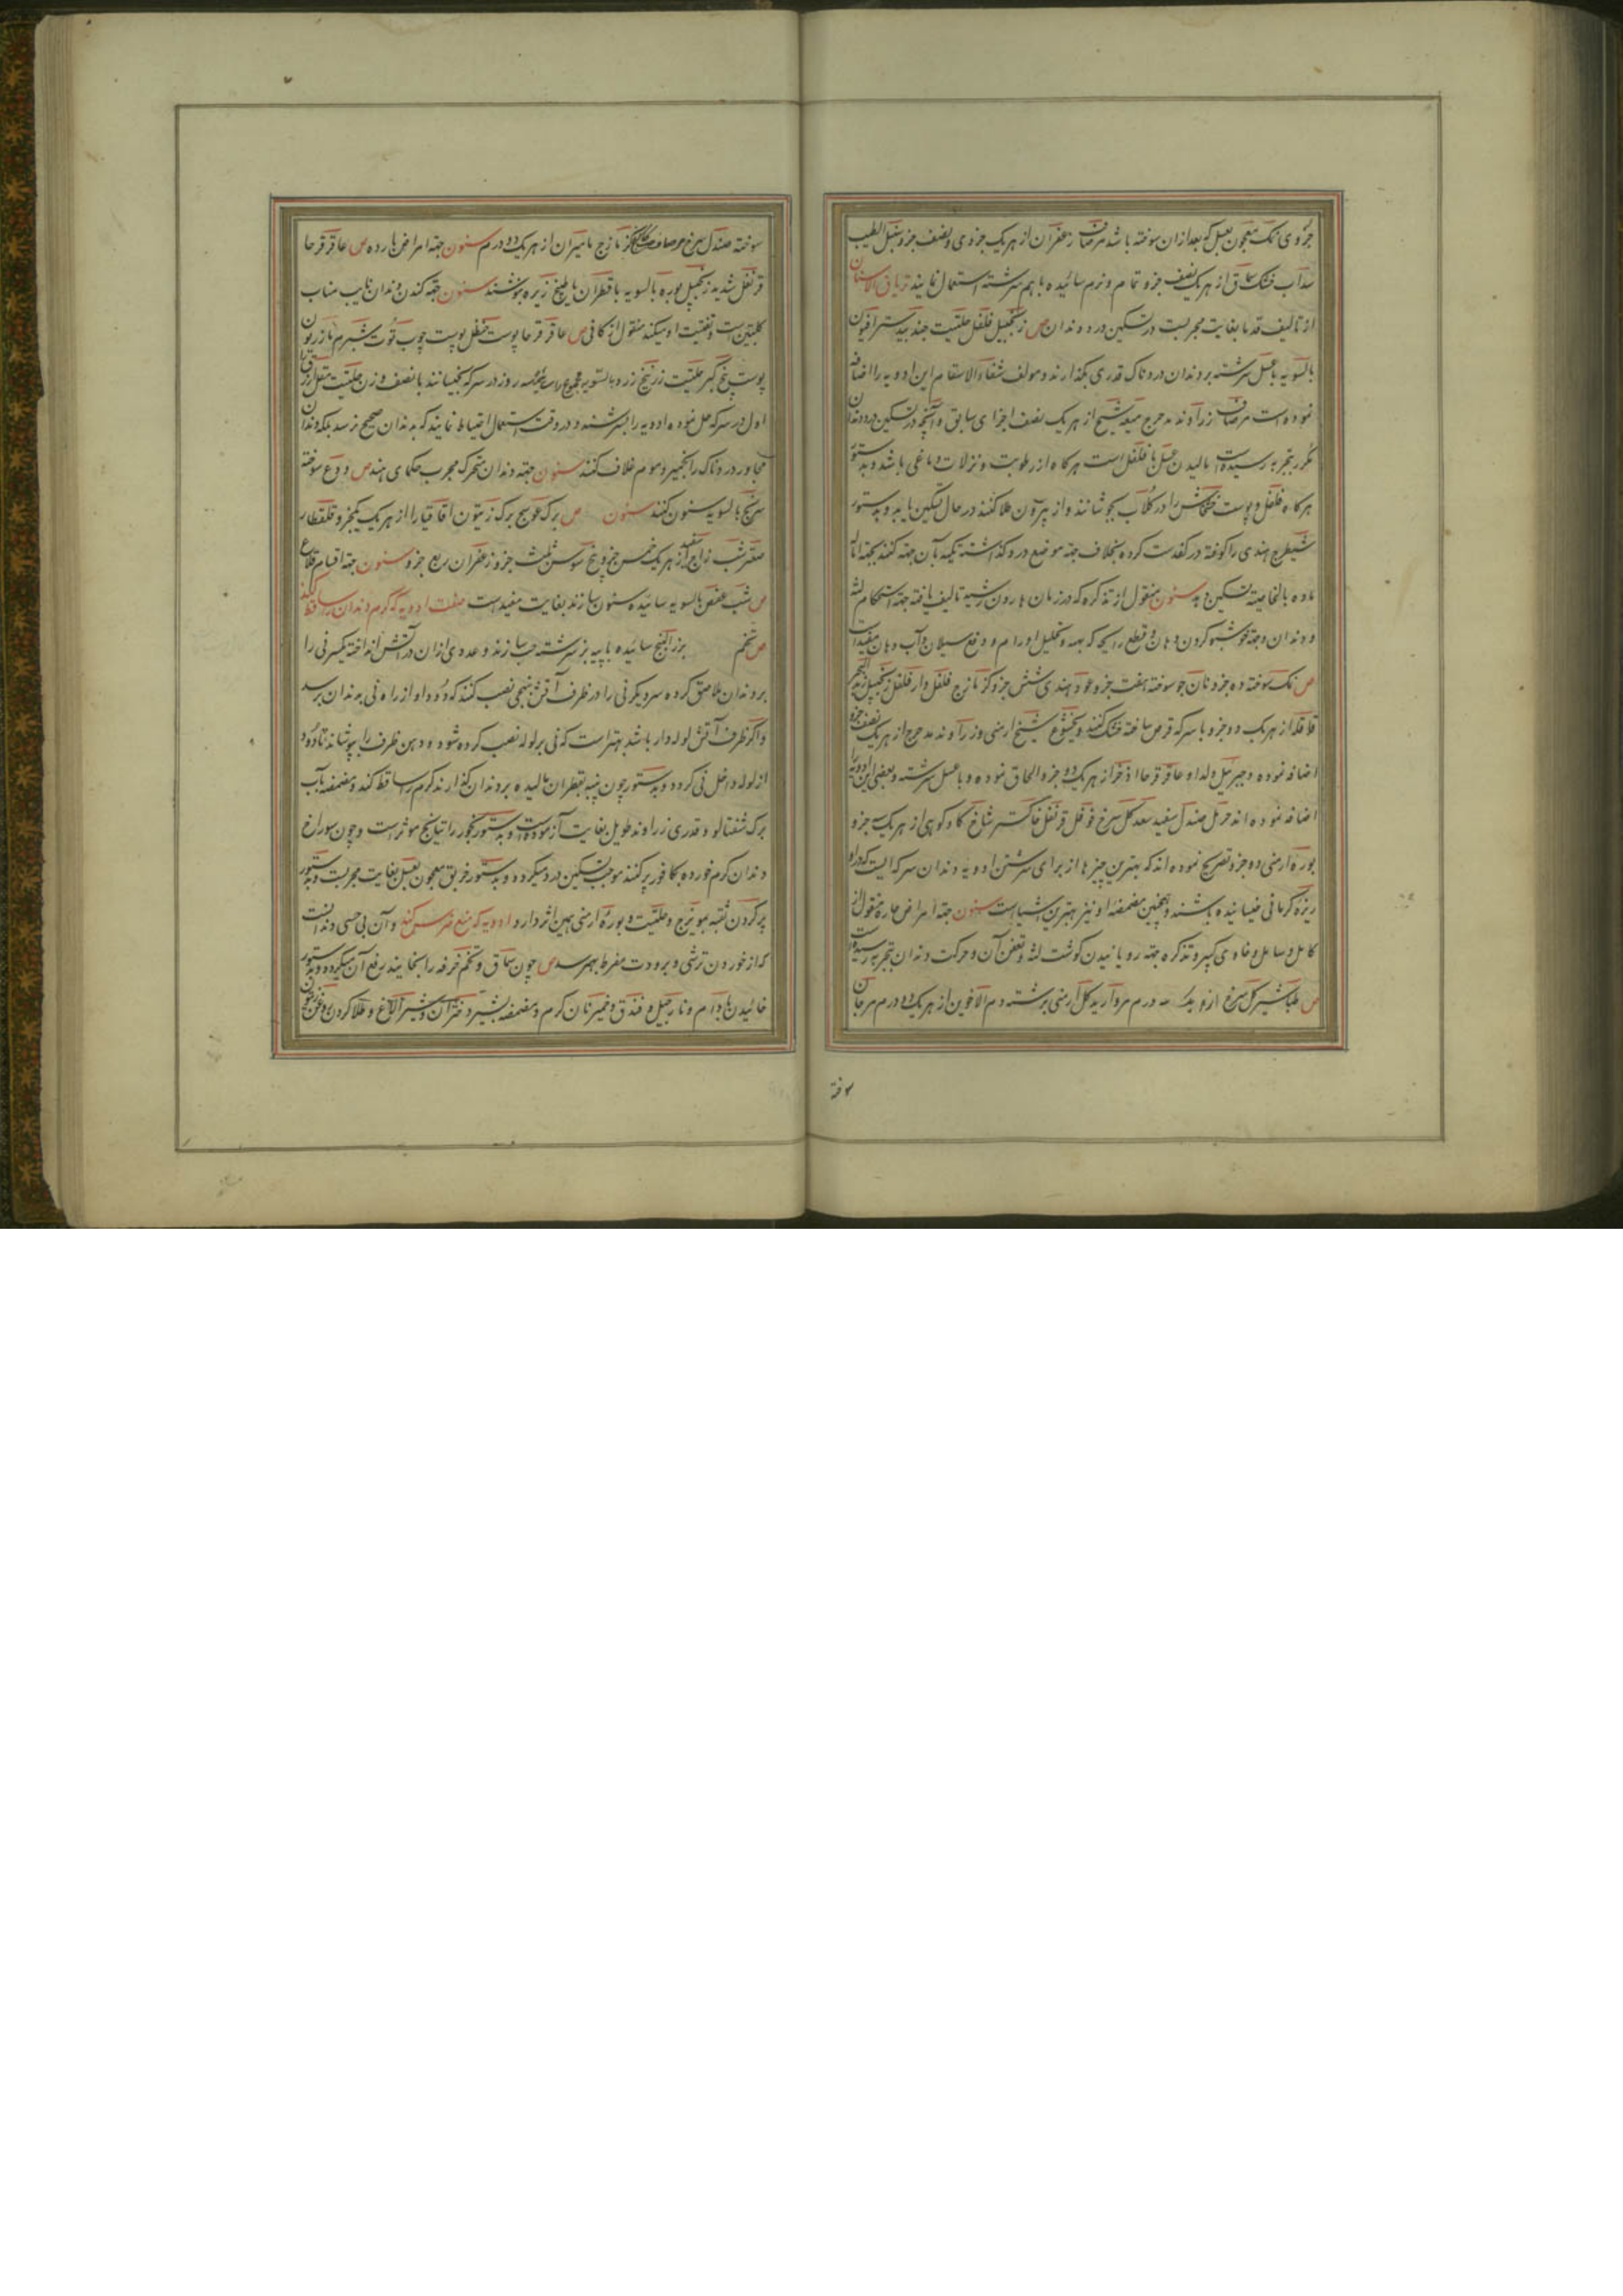 جزوی نمک معجون بعسل که بعد از ان سوخته باشد مرصاف زعفران از هر یک جزوی و نصف جزو سنبل الطیب
سداب خشک سماق از هر یک نصف جزو تمام و نرم سائیده باهم سرشته استعمال نمایند تریاق الاسنان
از تالیف قدما بغایت مجربست در تسکین درد دندان ص زنجبیل فلفل حلتیت جند بیدستر افیون
بالسویه با عسل سرشته بر دندان دردناک قدری بگذارند و مولف شفاء الاسقام این ادویه را اضافه
نموده است مرصاف زراوند مدحرج میعه شیح از هر یک نصف اجزای سابق و آنچه در تسکین درد دندان
مکرر بتجربه رسیده است مالیدن عسل با فلفل است هرگاه از رطوبت و نزلات دماغی باشد و بدستور
هرگاه فلفل و پوست خشخاش را در گلاب بجوشانند و از بیرون طلا کنند در حال تسکین یابد و بدستور
شیطرج هندی را کوفته در کفدست کرده بخلاف جهة موضع درد گذاشته تکیه بآن جهة کنند بجهة اماله
ماده بالخاصیة تسکین دهد سنون منقول از تذکره که در زمان هارون رشید تالیف یافته جهة استحکام لثه
و دندان و جهة خوشبو کردن دهان و قطع رایحه کریهه و تحلیل اورام و دفع سیلان آب دهان مفید است
ص نمک سوخته ده جزو نان جو سوخته هفت جزو عود هندی شش جزو کزمازج فلفل دار فلفل زنجبیل زبد البحر
قاقله از هر یک دو جزو با سرکه قرص ساخته خشک کنند و بختیشوع شیح ارمنی و زراوند مدحرج از هر یک نصف جزو
اضافه نموده و جبرئیل ولد او عاقرقرحا اذخر از هر یک دو جزو الحاق نموده و با عسل سرشته و بعضی این ادویه را
اضافه نموده اند حرمل صندل سفید سعد گل سرخ فوفل قرنفل خاکستر شاخ گاو کوهی از هر یک جزو
بوره ارمنی دو جزو تصریح نموده اند که بهترین چیزها از برای سرشتن ادویه دندان سرکه ایست که در او
زیره کرمانی خیسانیده باشند و همچنین مضمضه او نیز بهترین اشیا است سنون جهة امراض حاره منقول از
کامل و سامل و حاوی کبیر و تذکره جهة رویانیدن گوشت لثه و تعفن آن و حرکت دندان بتجربه رسیده است
ص طباشیر گل سرخ از هر یک سه درم مروارید گل ارمنی برشته دم الاخوین از هر یک دو درم مرجان
سوخته
سوخته صندل سرخ کزمازج مامیران از هر یک دو درم سنون جهة امراض بارده ص عاقرقرحا
قرنفل شدید زنجبیل بوره بالسویه با قطران یا طبیخ زیره بنوشند سنون جهة کندن دندان نایب مناب
کلبتین است و تفتیت او میکند منقول از کافی ص عاقرقرحا پوست حنظل پوست چوب توت شبرم مازریون
پوست بیخ کبر حلتیت زرنیخ زرد بالسویه مجموع را سه روز در سرکه بخیسانند با نصف وزن حلتیت مقل ازرق را
اول در سرکه حل نموده ادویه را بسرشند و در وقت استعمال احتیاط نمایند که بدندان صحیح نرسد بلکه دندان
مجاور دردناک را بخمیر و موم غلاف کنند سنون جهة دندان متحرک مجرب حکمای هند ص ودع سوخته
سرنج بالسویه سنون کنند سنون ص برک عوسج برک زیتون اقاقیا را از هر یک یکجزو قلقطار
صعتر شب زاج سفید از هر یک خمس جزو بیخ سوسن ثلث جزو زعفران ربع جزو سنون جهة اقسام قلاع
ص شب عفص بالسویه سائیده سنون سازند بغایت مفید است صفت ادویه که کرم دندان را ساقط کند
ص تخم بزرالبنج سائیده با پیه بز سرشته حب سازند و عددی از ان در آتش انداخته یکسر نی را
بر دندان ملاصق کرده سر دیگر نی را در ظرف آتش نهجی نصب کنند که دود او از راه نی بدندان برسد
و اگر ظرف آتش لوله دار باشد بهتر است که نی بر لوله نصب کرده شود و دهن ظرف را بپوشانند تا دود
از لوله داخل نی گردد و بدستور چون پنبه بقطران مالیده بر دندان گذارند کرم را ساقط کند و مضمضه بآب
برک شفتالو و قدری زراوند طویل بغایت آزموده است و بدستور بخور راتیانج موثر است و چون سوراخ
دندان کرم خورده بکافور پر کنند موجب تسکین درد میگردد و بدستور خربق معجون بعسل بغایت مجربست و بدستور
پر کردن ثقبه بمویزج و حلتیت و بوره ارمنی همین اثر دارد و ادویه که منع ضرس کند و آن بی حسی دندانست
که از خوردن ترشی و برودت مفرط بهمرسد ص چون سماق و تخم خرفه را بخایند رفع آن میگردد و بدستور
خائیدن بادام و نارجیل و فندق و خمیر نان گرم و مضمضه بشیر دختران و شیر الاغ و طلا کردن روغن زیتون